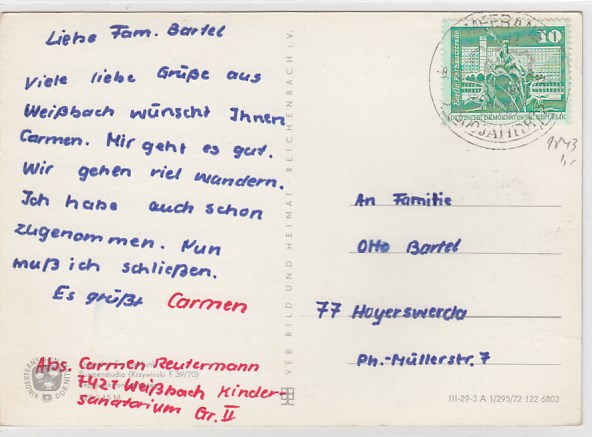 Liebe Fam. Bartel
Viele liebe Grüße aus
Weißbach wünscht Ihnen
Carmen. Mir geht es gut.
Wir gehen viel wandern.
Ich habe auch schon
zugenommen. Nun
muß ich schließen.
Es grüßt Carmen
Abs. Carmen Reutermann
7421 Weißbach Kinder-
sanatorium Gr. II
VEB BILD UND HEIMAT REICHENBACH i.V.
10
DEUTSCHE DEMOKRATISCHE REPUBLIK
An Familie
Otto Bartel
77 Hoyerswerda
Ph.-Müllerstr. 7
III-29-3 A 1/295/72 122 6803